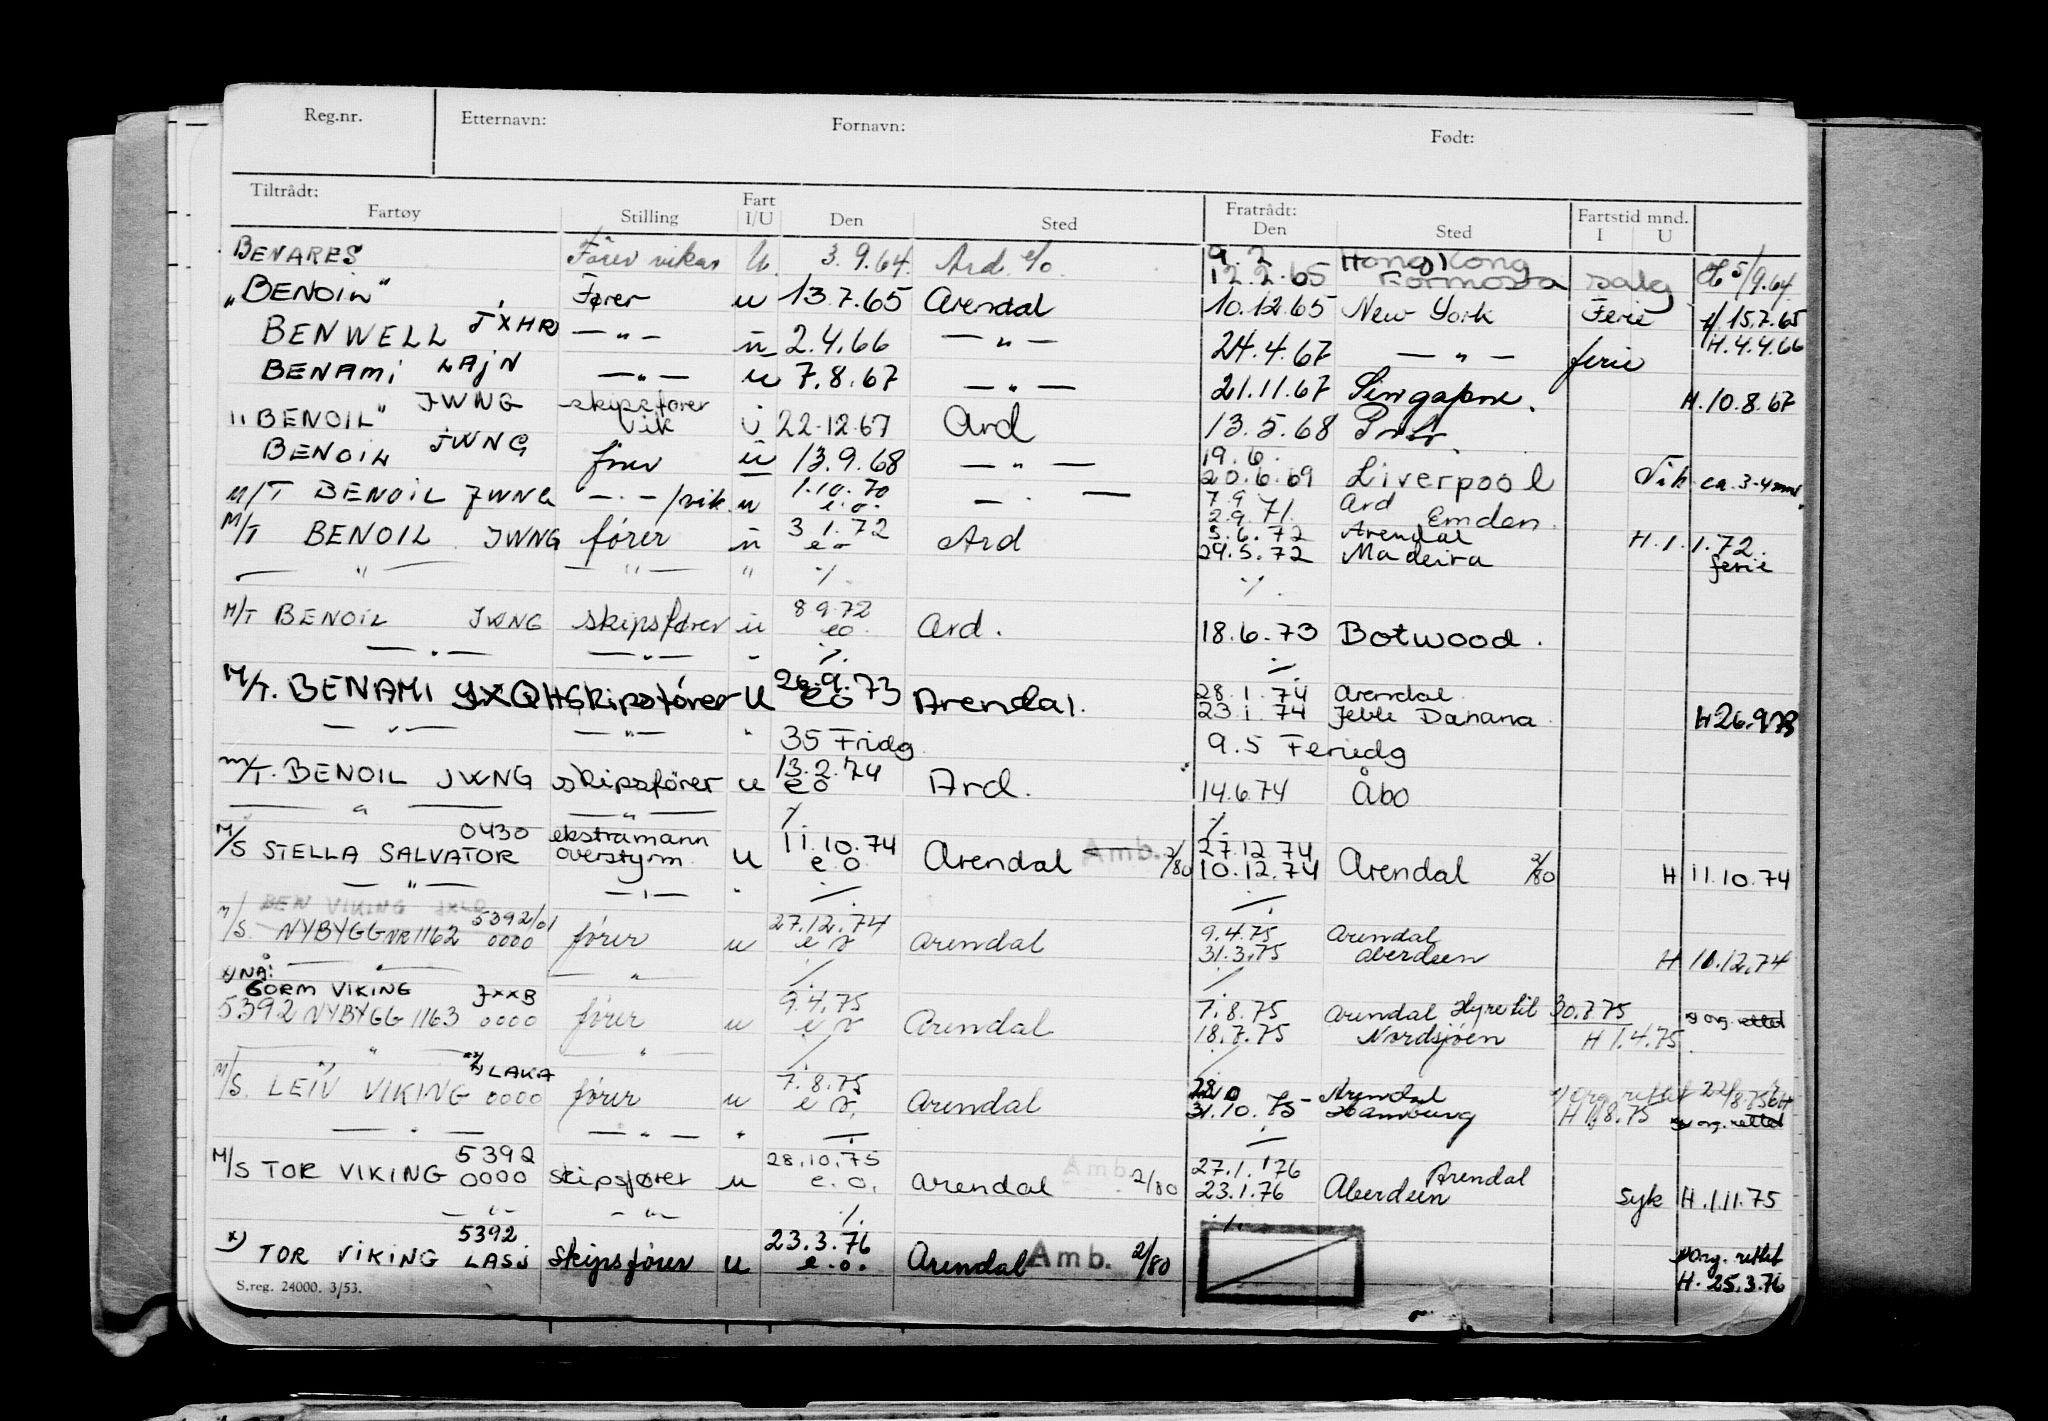 Reg.nr. Etternavn: Fornavn: Født:
Tiltrådt: Fratrådt: Fartstid mnd.
Fartøy Stilling Fart I/U Den Sted Den Sted I U
BENARES Fører vikar U. 3.9.64. Ard e/o. 9.2 Hong Kong
12.2.65 Formosa salg H 5/9.64.
"BENOIL" Fører u 13.7.65 Arendal 10.12.65 New York Ferie H.15.7.65
BENWELL JXHR — " — u 2.4.66 — " — 24.4.67 — " — ferie H.4.4.66
BENAMI LAJN — " — u 7.8.67 — " — 21.11.67 Singapore. H.10.8.67
"BENOIL" JWNG skipsfører vik u 22.12.67 Ard 13.5.68
BENOIL JWNG fører u 13.9.68 — " — 19.6.
20.6.69 Liverpool Vik ca. 3-4 mnd.
M/T BENOIL JWNG — " — /vik. u 1.10.70 e.o. — " — 7.9 Ard
2.9.71. Emden.
M/T BENOIL JWNG fører u 3.1.72 e o Ard 5.6.72 Arendal H.1.1.72.
29.5.72 Madeira ferie
— " — — " — " ./. ./.
M/T BENOIL JWNG skipsfører u 8 9.72 eo. Ard. 18.6.73 Botwood.
— " — — " — " ./. ./.
M/T. BENAMI JXQH Skipsfører U 26.9.73 eo Arendal. 28.1.74 Arendal
23.1.74 Jebel Danana. H 26.9.73
— " — — " — " 35 Fridg. 9.5 Feriedg
M/T. BENOIL JWNG skipsfører u 13.2.74 eo Ard. 14.6.74 Åbo
— " — — " — ./. ./.
M/S STELLA SALVATOR 0430 ekstramann overstyrm. u 11.10.74 e.o Arendal Amb. 2/80 27.12 74
10.12.74 Arendal 2/80 H 11.10.74
— " — — " — " ./. ./.
BEN VIKING
M/S. NYBYGG NR 1162 5392/01 0000 fører u 27.12.74 e o arendal 9.4.75 Arendal
31.3.75 Aberdeen H 10.12.74
x) NÅ: — " — — " — ./. ./.
GORM VIKING JXXB
5392 NYBYGG 1163 0000 fører u 9.4.75 e o Arendal 7.8.75 Arendal Hyre til 30.7.75
18.7.75 Nordsjøen H 1.4.75. x) org. rettet
" " ./. ./.
M/S. LEIV VIKING LAKA 0000 fører u 7.8.75 e o. Arendal 28.10 - Arendal
31.10.75 Hamburg H 1.8.75 x) org. rettet
— " — — " — " ./. ./.
M/S TOR VIKING 5392 0000 skipsfører u 28.10.75 e.o. Arendal Amb. 2/80 27.1.76 Arendal
23.1.76 Aberdeen syk H.1.11.75
— " — — " — ./. ./.
x) TOR VIKING 5392 LASJ Skipsfører u 23.3.76 e.o. Arendal Amb. 2/80 x) Org. rettet
H. 25.3.76
S.reg. 24000. 3/53.